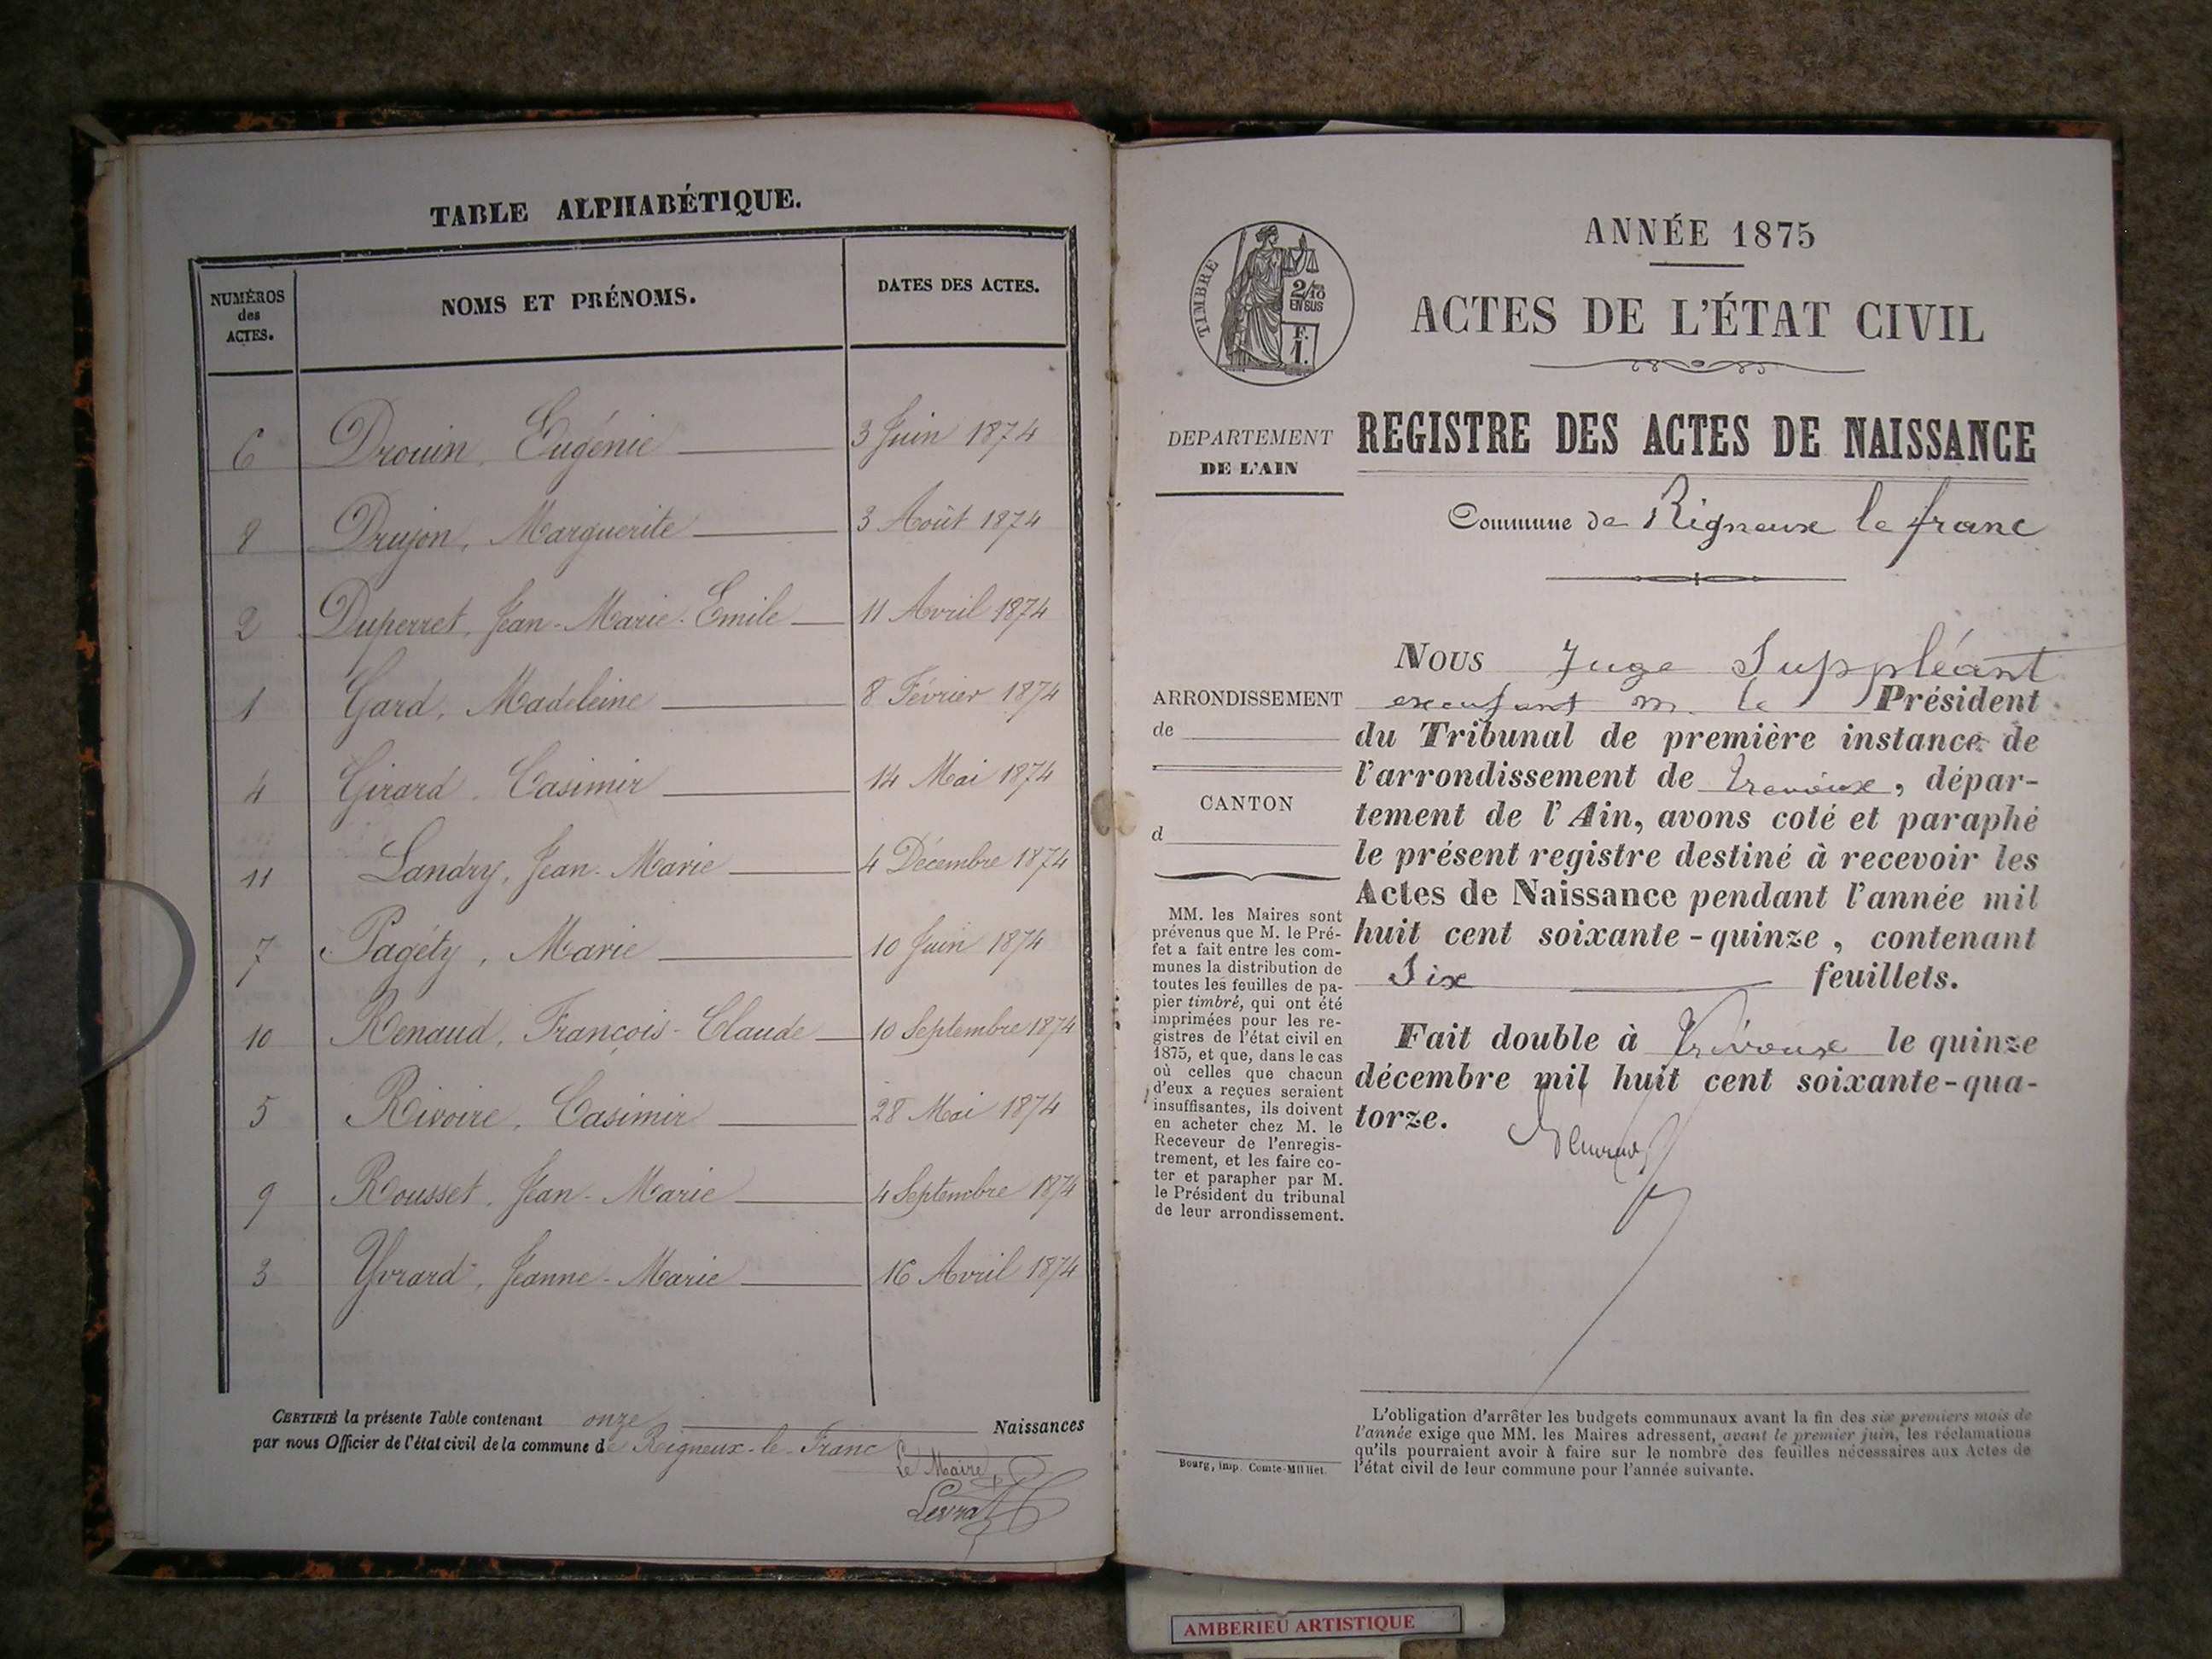 TABLE ALPHABÉTIQUE.
NUMÉROS des ACTES.
NOMS ET PRÉNOMS.
DATES DES ACTES.
6 Drouin, Eugénie 3 Juin 1874
8 Drujon, Marguerite 3 Août 1874
2 Duperret, Jean-Marie-Emile 11 Avril 1874
1 Gard, Madeleine 8 Février 1874
4 Girard, Casimir 14 Mai 1874
11 Landry, Jean-Marie 4 Décembre 1874
7 Pagéty, Marie 10 Juin 1874
10 Renaud, François-Claude 10 Septembre 1874
5 Rivoire, Casimir 28 Mai 1874
9 Rousset, Jean-Marie 4 Septembre 1874
3 Yvrard, Jeanne-Marie 16 Avril 1874
CERTIFIÉ la présente Table contenant onze Naissances
par nous Officier de l'état civil de la commune de Rigneux-le-Franc
Le Maire
Levrat
TIMBRE
2/10
EN SUS
F.
1.
ANNÉE 1875
ACTES DE L'ÉTAT CIVIL
DEPARTEMENT
DE L'AIN
REGISTRE DES ACTES DE NAISSANCE
Commune de Rigneux le franc
ARRONDISSEMENT
de
CANTON
d
MM. les Maires sont
prévenus que M. le Pré-
fet a fait entre les com-
munes la distribution de
toutes les feuilles de pa-
pier timbré, qui ont été
imprimées pour les re-
gistres de l'état civil en
1875, et que, dans le cas
où celles que chacun
d'eux a reçues seraient
insuffisantes, ils doivent
en acheter chez M. le
Receveur de l'enregis-
trement, et les faire co-
ter et parapher par M.
le Président du tribunal
de leur arrondissement.
Bourg, imp. Comte-Milliet.
NOUS Juge Suppléant
m. le Président
du Tribunal de première instance de
l'arrondissement de Trevoux, dépar-
tement de l'Ain, avons coté et paraphé
le présent registre destiné à recevoir les
Actes de Naissance pendant l'année mil
huit cent soixante-quinze, contenant
Six feuillets.
Fait double à Trévoux le quinze
décembre mil huit cent soixante-qua-
torze.
L'obligation d'arrêter les budgets communaux avant la fin des six premiers mois de
l'année exige que MM. les Maires adressent, avant le premier juin, les réclamations
qu'ils pourraient avoir à faire sur le nombre des feuilles nécessaires aux Actes de
l'état civil de leur commune pour l'année suivante.
AMBERIEU ARTISTIQUE